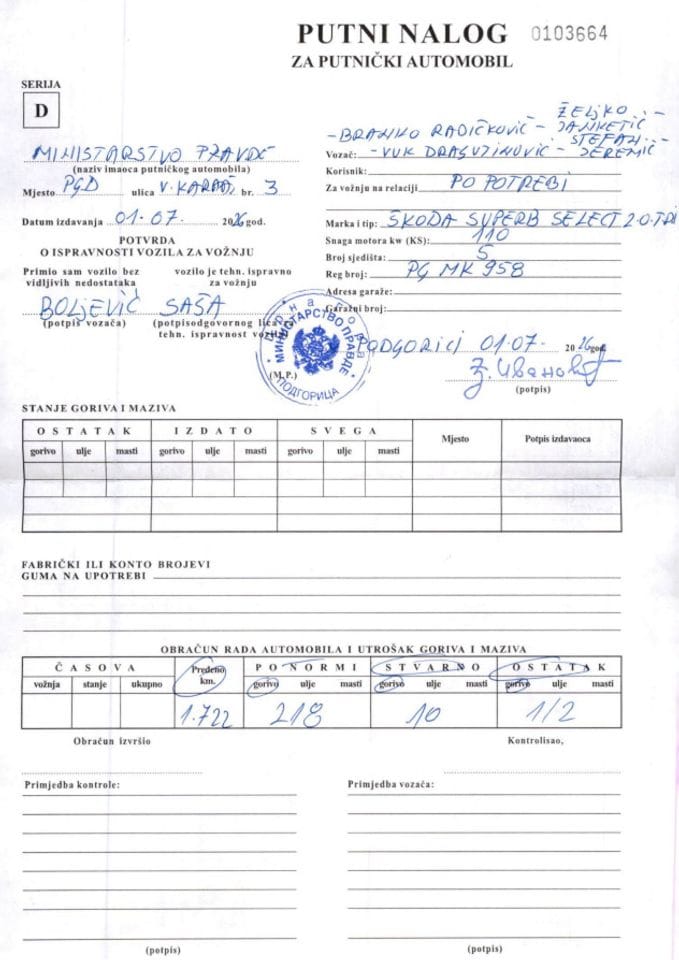 PUTNI NALOG 0103664
ZA PUTNIČKI AUTOMOBIL
SERIJA
D
ŽELJKO -
-BRANKO RADIČKOVIĆ - JANKETIĆ
STEFAN -
MINISTARSTVO PRAVDE
(naziv imaoca putničkog automobila)
Vozač: -VUK DRAGUTINOVIĆ - JEREMIĆ
Korisnik:
Mjesto PGD ulica V. KARAD. br. 3
Za vožnju na relaciji PO POTREBI
Datum izdavanja 01.07. 2026 god.
Marka i tip: ŠKODA SUPERB SELECT 2.0.TDI
POTVRDA
O ISPRAVNOSTI VOZILA ZA VOŽNJU
Snaga motora kw (KS): 110
Broj sjedišta: 5
Primio sam vozilo bez vozilo je tehn. ispravno
vidljivih nedostataka za vožnju
Reg broj: PG MK 958
Adresa garaže:
BOLJEVIĆ SAŠA
Garažni broj:
(potpis vozača) (potpisodgovornog lica za
tehn. ispravnost vozila)
Црна Гора
МИНИСТАРСТВО ПРАВДЕ
ПОДГОРИЦА
(M.P.)
PODGORICI 01.07. 2026 god.
(potpis)
STANJE GORIVA I MAZIVA
OSTATAK IZDATO SVEGA Mjesto Potpis izdavaoca
gorivo ulje masti gorivo ulje masti gorivo ulje masti
FABRIČKI ILI KONTO BROJEVI
GUMA NA UPOTREBI
OBRAČUN RADA AUTOMOBILA I UTROŠAK GORIVA I MAZIVA
ČASOVA Pređeno km. PO NORMI STVARNO OSTATAK
vožnja stanje ukupno gorivo ulje masti gorivo ulje masti gorivo ulje masti
1.722 218 10 1/2
Obračun izvršio Kontrolisao,
Primjedba kontrole: Primjedba vozača:
(potpis) (potpis)